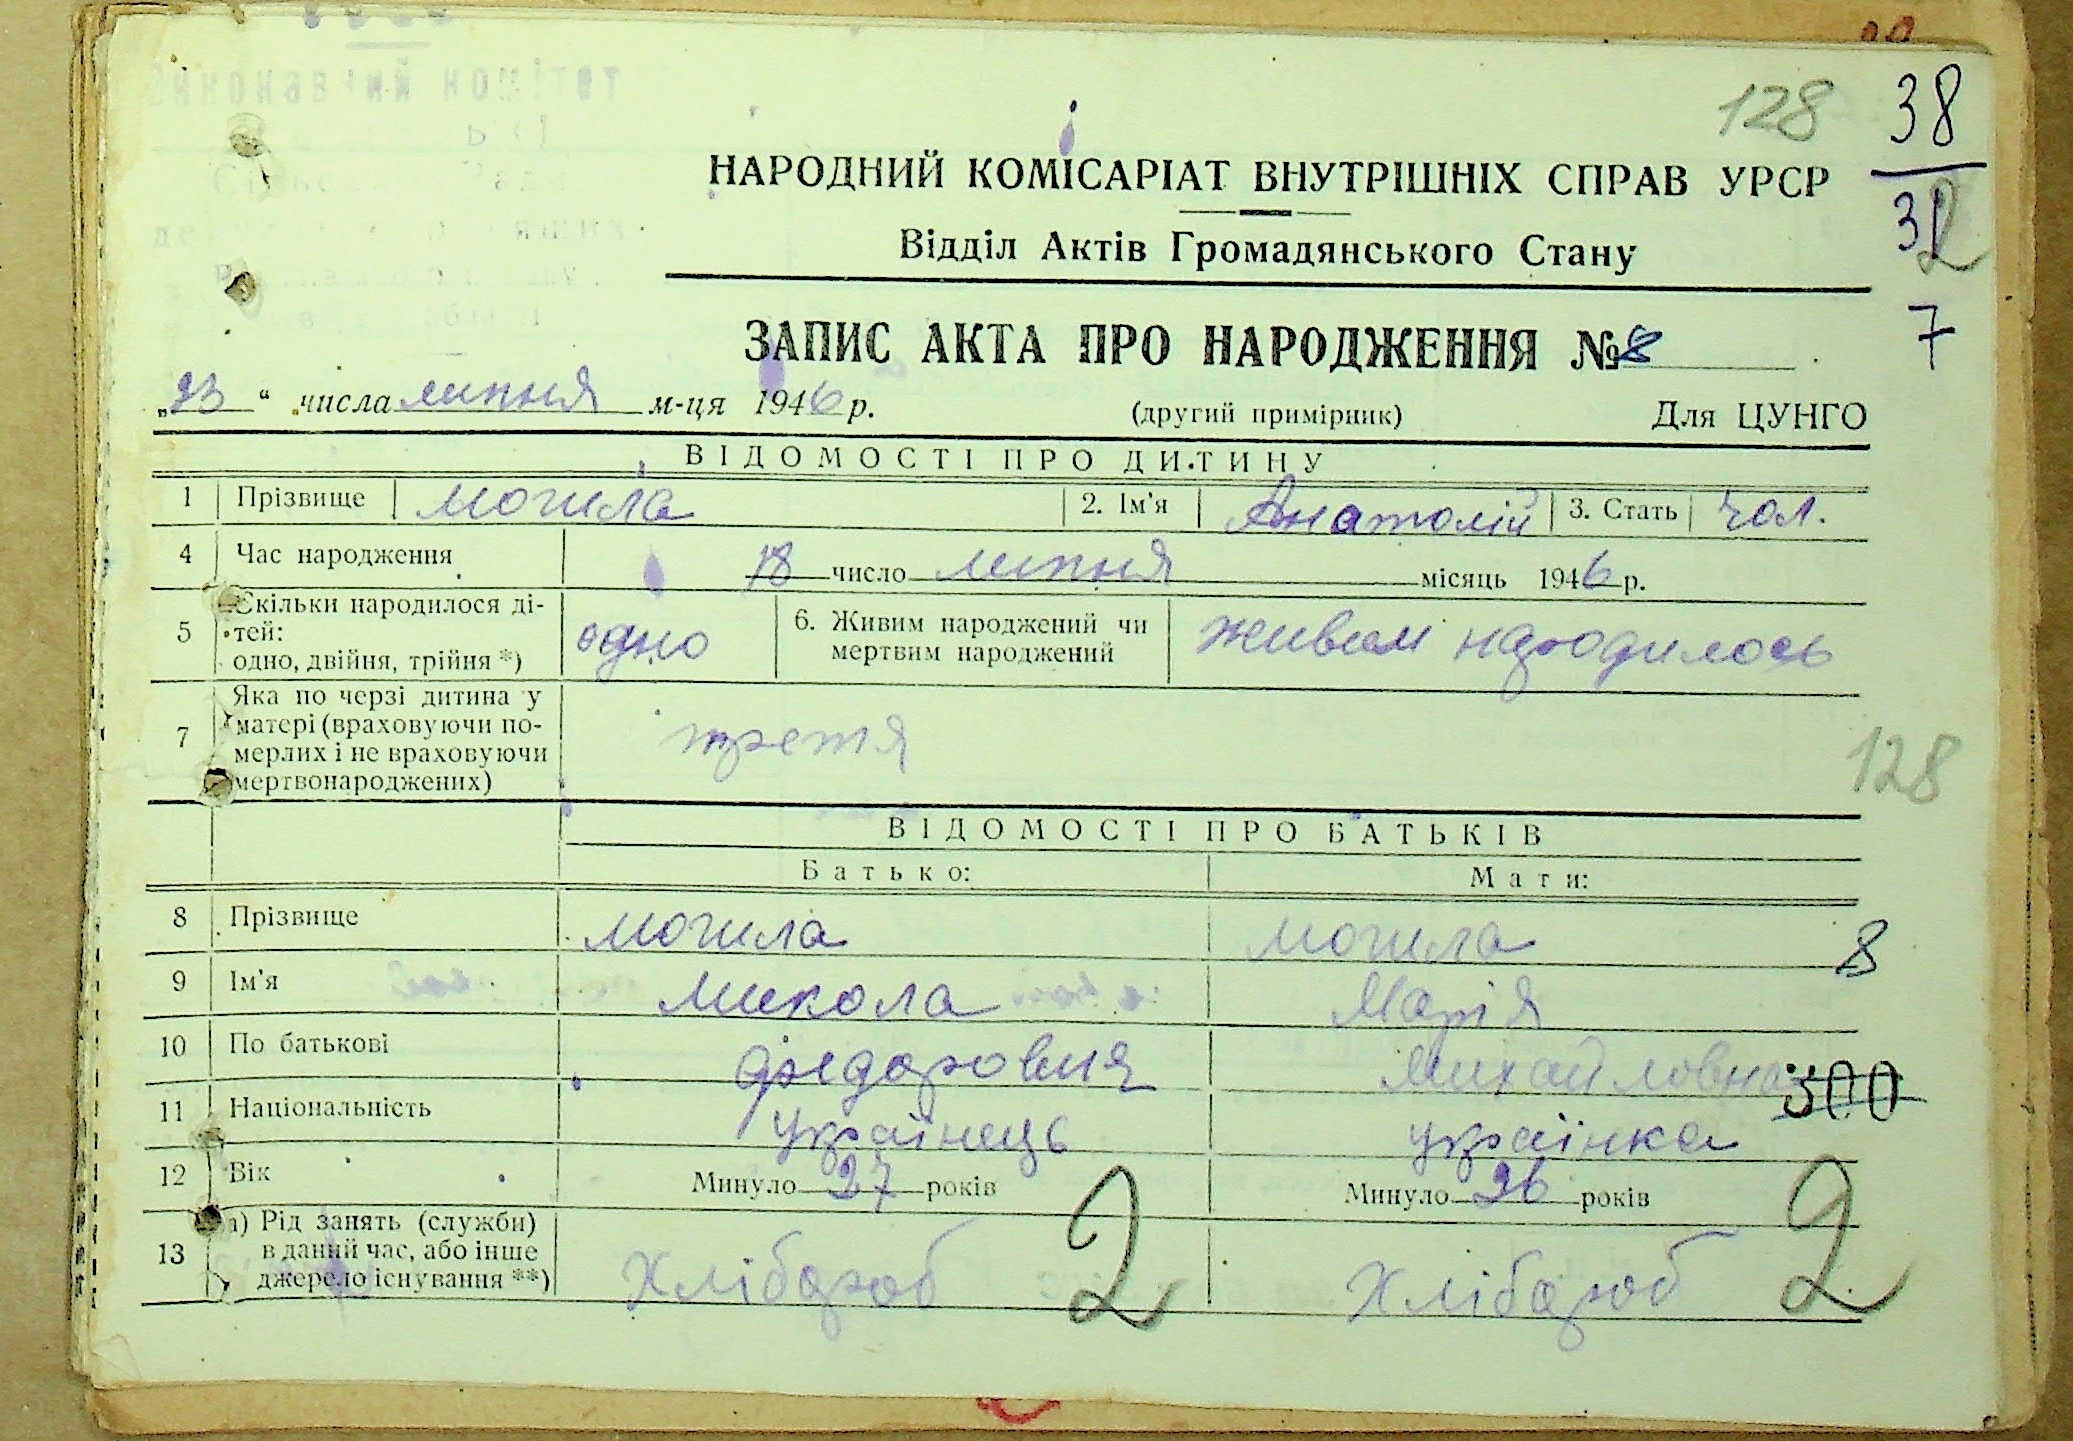 128
38
31
2
НАРОДНИЙ КОМІСАРІАТ ВНУТРІШНІХ СПРАВ УРСР
Відділ Актів Громадянського Стану
7
ЗАПИС АКТА ПРО НАРОДЖЕННЯ № 8
„23“ числа липня м-ця 1946 р. (другий примірник) Для ЦУНГО
ВІДОМОСТІ ПРО ДИТИНУ
1 Прізвище Могила 2. Ім'я Анатолій 3. Стать чол.
4 Час народження 18 число липня місяць 1946 р.
5 Скільки народилося ді-
тей:
одно, двійня, трійня *) одно 6. Живим народжений чи
мертвим народжений живим народилось
7 Яка по черзі дитина у
матері (враховуючи по-
мерлих і не враховуючи
мертвонароджених) третя
128
ВІДОМОСТІ ПРО БАТЬКІВ
Батько: Мати:
8 Прізвище Могила Могила 8
9 Ім'я Микола Марія
10 По батькові Федоровия Михайловна
300
11 Національність українець українка
12 Вік Минуло 27 років Минуло 26 років
13 а) Рід занять (служби)
в даний час, або інше
джерело існування **) Хлібороб 2 Хлібороб 2